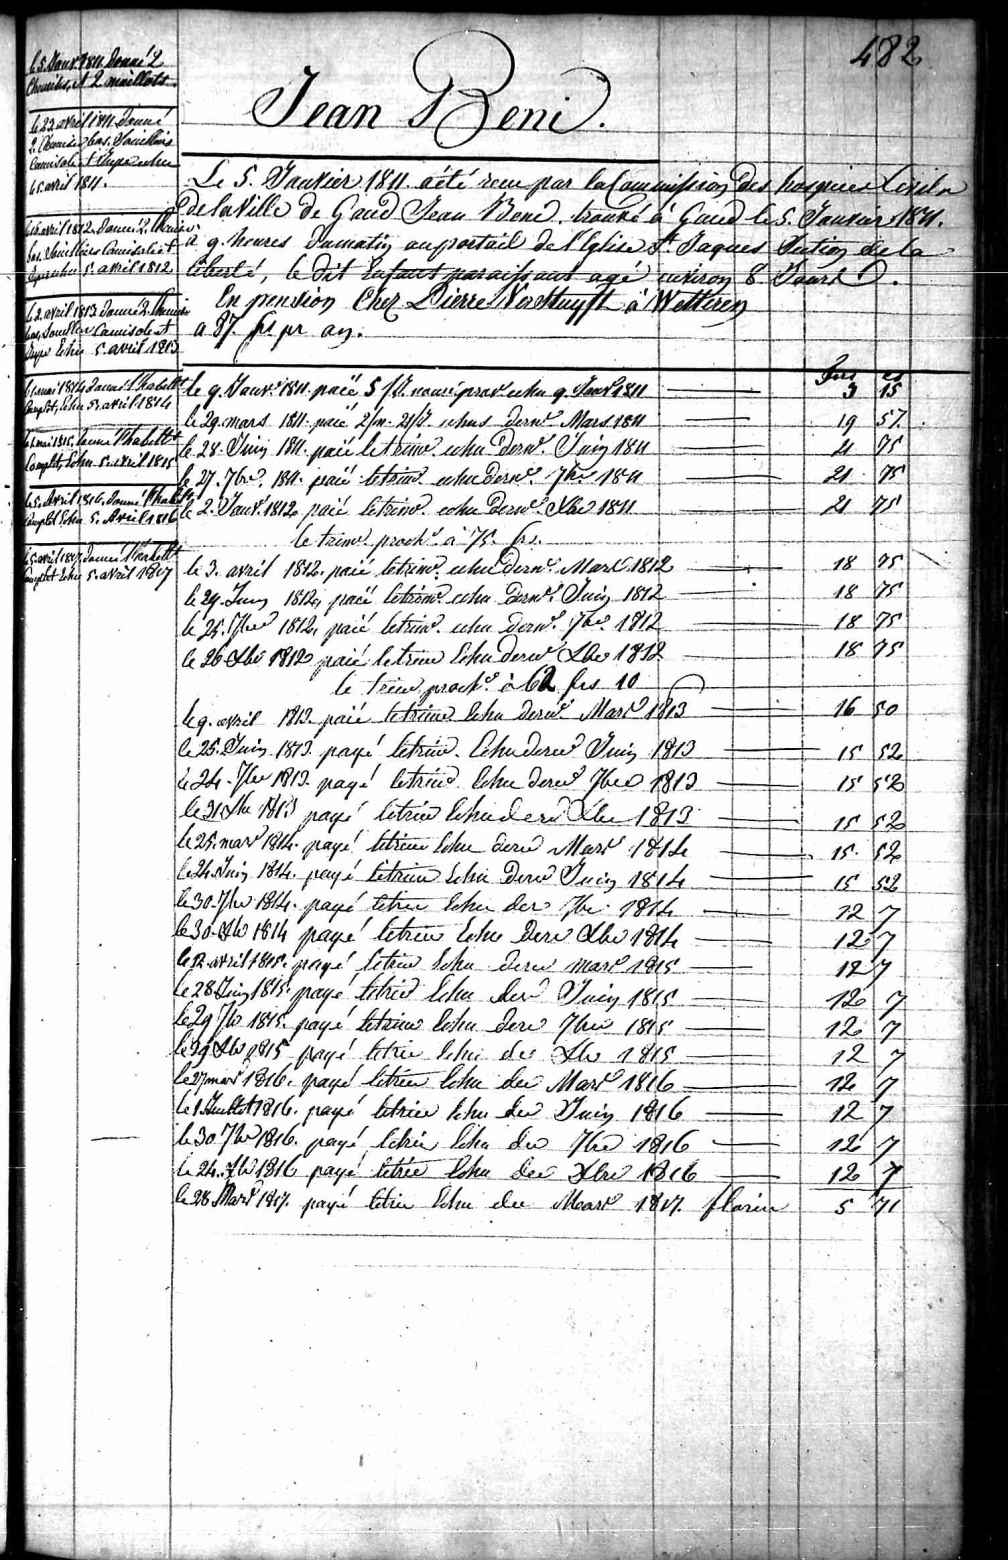 482
Jean Beni.
le 5. Janvr. 1811. Donné 2
Chemises, et 2 maillots
le 22 avril 1811. Donné
2. Chemises bas.
Camisole &
5 avril 1811.
le avril 1812. Donné 2. Chemis
bas. Camisole et
5. avril 1812
le 2. avril 1813. Donné 2. Chemis
bas, Camisole et
Jupe Echu 5. avril 1813
mai 1814 donné l'habillt
Complet, Echu 5. avril 1814
mai 1815. donné l'habillt
Complet, Echu 5. avril 1815
le 5. Avril 1816. Donné l'habill
Complet Echu 5. Avril 1816
le 5. avril 1817. donné l'habillt
Complet Echu 5. avril 1817
Le 5. Janvier 1811. a été recu par la Commission des hospices Civils
de la Ville de Gand Jean Beni, trouvé à Gand le 5. Janvier 1811.
à 9. heures du matin au portail de l'Eglise St. Jaques Section de la
liberté, le dit Enfant paraissant agé environ 8 Jours.
En pension Chez Pierre à Wetteren
a 87. frs pr an.
frs cs
le 9. Janvr. 1811. paié echu 9 Janvr 1811 3 15
le 29. mars 1811. paié echus dernr. Mars 1811 19 57.
le 28. Juin 1811. paié le trimr. echu dernr. Juin 1811 21 75
le 27. 7bre. 1811. paié le trimr. echu dernr. 7bre 1811 21 75
le 2. Janvr. 1812 paié le trimr. echu dernr. Xbre 1811 21 75
le trimr. prochr. à 75. frs.
le 3. avril 1812. paié le trimr. echu dernr. Mars 1812 18 75
le 29. Juin 1812, paié le trimr. echu dernr. Juin 1812 18 75
le 25. 7bre 1812, paié le trimr. echu dernr. 7bre. 1812 18 75
le 26 Xbre 1812 paié le trimr Echu dernr Xbre 1812 18 75
le trimr prochr. à 62 frs 10
le 9. avril 1813. paié le trimr Echu dernr. Mars 1813 16 50
le 25. Juin 1813. payé le trimr. Echu dernr Juin 1813 15 52
le 24. 7bre 1813. payé le trimr Echu dernr 7bre 1813 15 52
le 31 Xbre 1813 payé le trim Echu dernr Xbre 1813 15 52
le 25. mars 1814. payé le trim Echu dernr Mars 1814 15. 52
le 24. Juin 1814. payé le trim Echu dernr Juin 1814 15 52
le 30. 7bre 1814. payé le trim Echu der 7bre 1814 12 7
le 30. Xbre 1814 payé le trim Echu dern Xbre 1814 12 7
le 12. avril 1815. payé le trim Echu dern mars 1815 12 7
le 28 Juin 1815. payé le trim Echu der Juin 1815 12 7
le 29 7br 1815. payé le trim Echu dern 7bre 1815 12 7
le 29 Xbr 1815 payé le trim Echu der Xbr 1815 12 7
le 27 mars 1816. payé le trim Echu der Mars 1816 12 7
le 1 Juillet 1816. payé le trim Echu der Juin 1816 12 7
le 30 7br 1816. payé le trim Echu der 7bre 1816 12 7
le 24. Xbr 1816 payé le trim Echu der Xbre 1816 12 7
le 28 Mars 1817. payé le trim Echu der Mars 1817. florins 5 71